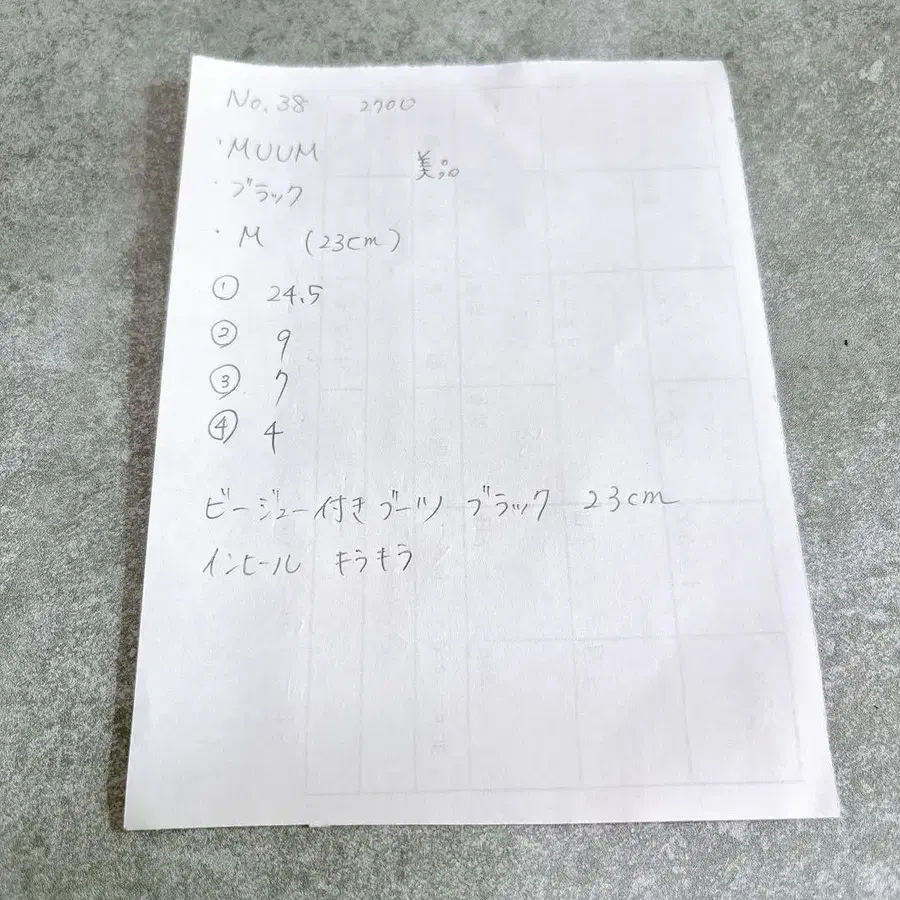 No.38 2700
・MUUM 美品
・ブラック
・M (23cm)
① 24.5
② 9
③ 7
④ 4
ビージュー付きブーツ ブラック 23cm
インヒール キラキラ